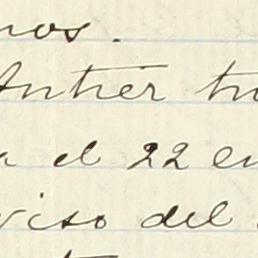 nos.
Antier tu
a el 22 en
viso del